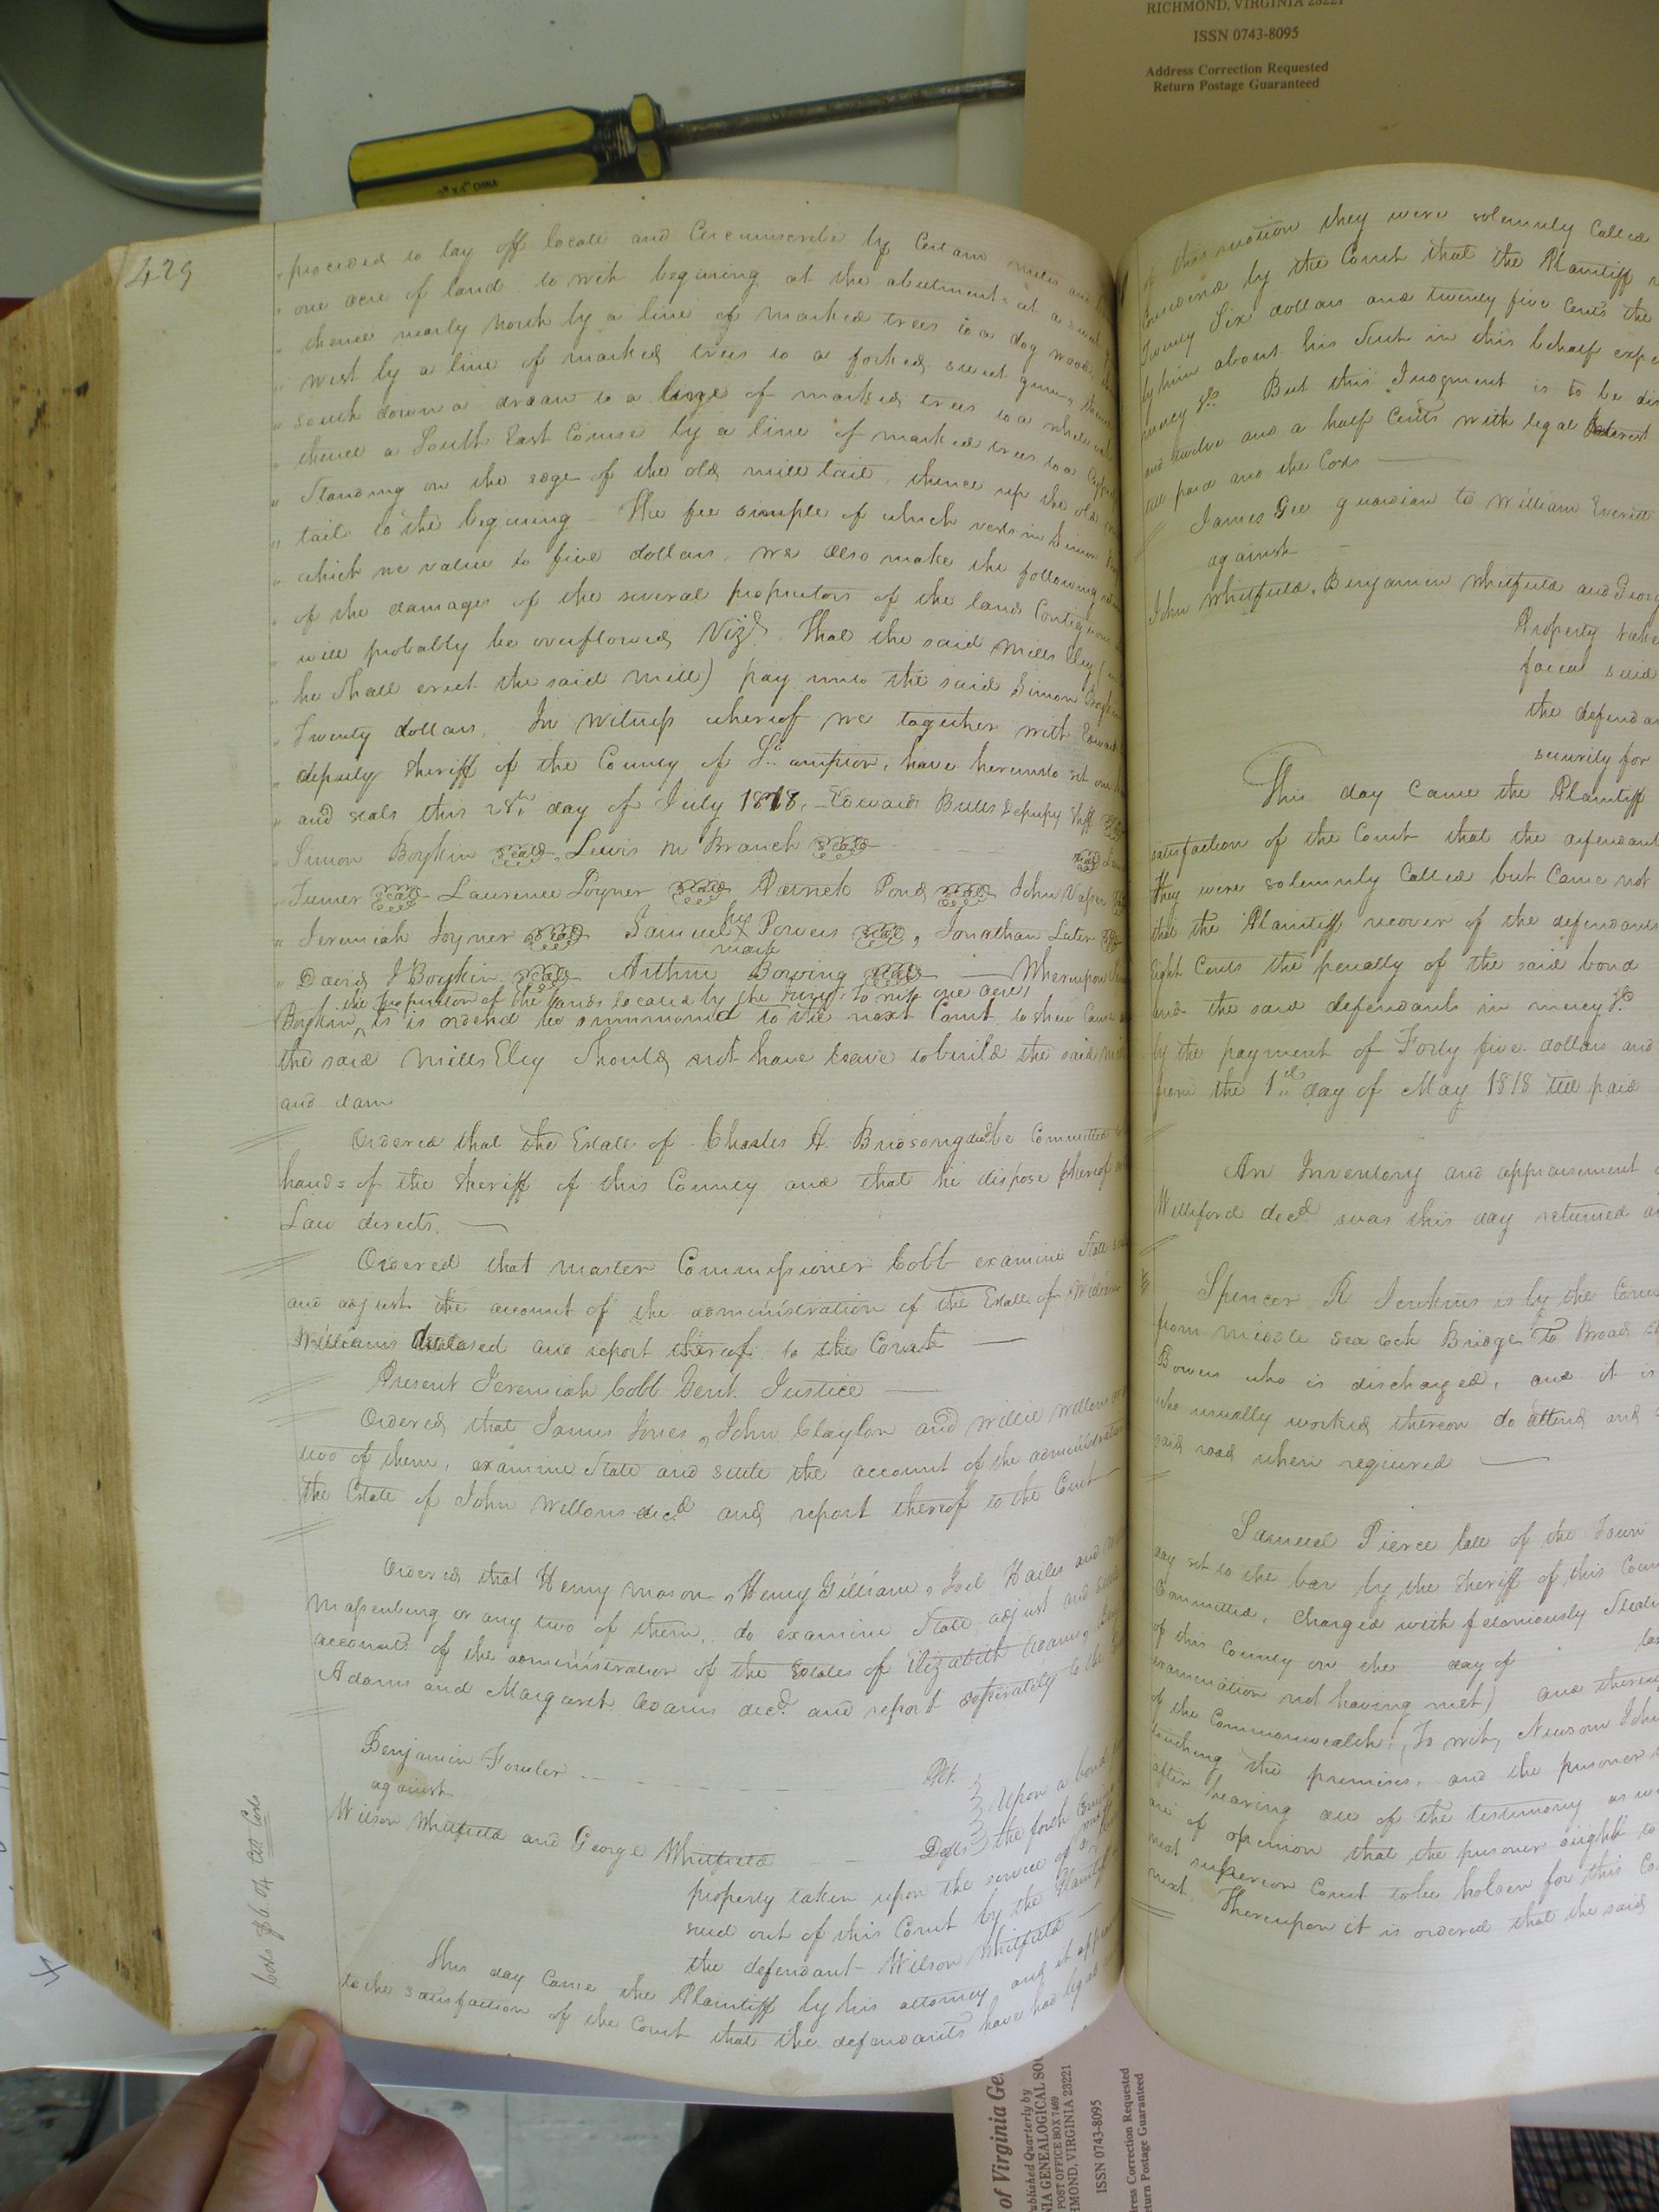 RICHMOND, VIRGINIA 23221
ISSN 0743-8095
Address Correction Requested
Return Postage Guaranteed
429
" proceeded to lay off locate and Circumscribe by Certain metes and
" one acre of land to wit begining at the abutments at a
" thence nearly North by a line of marked trees to a dog wood,
" west by a line of marked trees to a forked sweet gum, thence
" south down a drean to a line of marked trees to a white oak
" thence a South East Course by a line of marked trees to a
" Standing on the edge of the old mill tail, thence up the old
" tail to the begining - The fee simple of which vests in Simon
" which we value to five dollars. we also make the following
" of the damages of the several proprietors of the land Contiguous
" will probably be overflowed Vizd. That the said Mills Eley (
" he Shall erect the said mill) pay unto the said Simon Boykin
" Twenty dollars. In witness whereof we together with Edward
" deputy Sheriff of the County of So. ampton, have hereunto set our
" and seals this 28th day of July 1818. Edward Butts Deputy Shff
" Simon Boykin Seal, Lewis M Branch Seal
" Turner Seal Laurence Joyner Seal Patrick Pond Seal John Vasser
" Jeremiah Joyner Seal Samuel his X mark Powers Seal, Jonathan Luter
" David J Boykin Seal Arthur Bowing Seal — Whereupon
the proprietor of the lands located by the Jury, to wit one acre,
Boykin ^ is is ordered be summoned to the next Court to shew Cause
the said Mills Eley Should not have leave to build the said
and dam
Ordered that the Estate of Charles A. Birdsong decd be Committed
hands of the Sheriff of this County and that he dispose thereof
Law directs. —
Ordered that master Commissioner Cobb examine State
and adjust the account of the administration of the Estate of
Williams deceased and report thereof to the Court —
Present Jeremiah Cobb Gent. Justice —
Ordered that James Jones, John Clayton and Willie Wellons
two of them, examine State and settle the account of the administration
the Estate of John Wellons decd and report thereof to the Court
Ordered that Henry Mason, Henry Gilliam, Joel Hailes and
Massenburg or any two of them, do examine State adjust and
accounts of the administration of the Estates of Elizabeth Adams,
Adams and Margaret Adams decd. and report seperately to the
Benjamin Fowler Plt.
against
Wilson Whitfield and George Whitfield Defts
Upon a bond
the forth
property taken upon the service of a
sued out of this Court by the Plaintiff
the defendant Wilson Whitfield —
This day Came the Plaintiff by his attorney and it
to the satisfaction of the Court that the defendants have had legal
Costs $6.
of this motion they were solemnly Called
Considered by the Court that the Plaintiff
Twenty Six dollars and twenty five Cents the
by him about his Suit in this behalf
mercy &c. But this Judgment is to be
and twelve and a half Cents with legal Interest
till paid and the Costs —
James Gee guardian to William Everitt
against
John Whitfield, Benjamin Whitfield and
Property
facias sued
the
security for
This day Came the Plaintiff
satisfaction of the Court that the defendant
They were solemnly Called but Came not
that the Plaintiff recover of the defendants
Eight Cents the penalty of the said bond
and the said defendants in mercy &c.
by the payment of Forty five dollars and
from the 1st day of May 1818 till paid
An Inventory and appraisement
Williford decd was this day returned
Spencer R Jenkins is by the
from middle Seacock Bridge To Broad
Bowers who is discharged, and it is
who usually worked thereon do attend and
said road when required —
Samuel Pierce late of the Town
day set to the bar by the Sheriff of this
Committed, Charged with feloniously
of this County on the day of
examination not having met) and
of the Commonwealth, To wit, Newsom
touching the premises, and the prisoner
after hearing all of the testimony as
are of opinion that the prisoner ought to
next superior Court to be holden for this
next. Thereupon it is ordered that the said
of Virginia
ublished Quarterly by
NIA GENEALOGICAL
POST OFFICE BOX 7469
HMOND, VIRGINIA 23221
ISSN 0743-8095
dress Correction Requested
eturn Postage Guaranteed